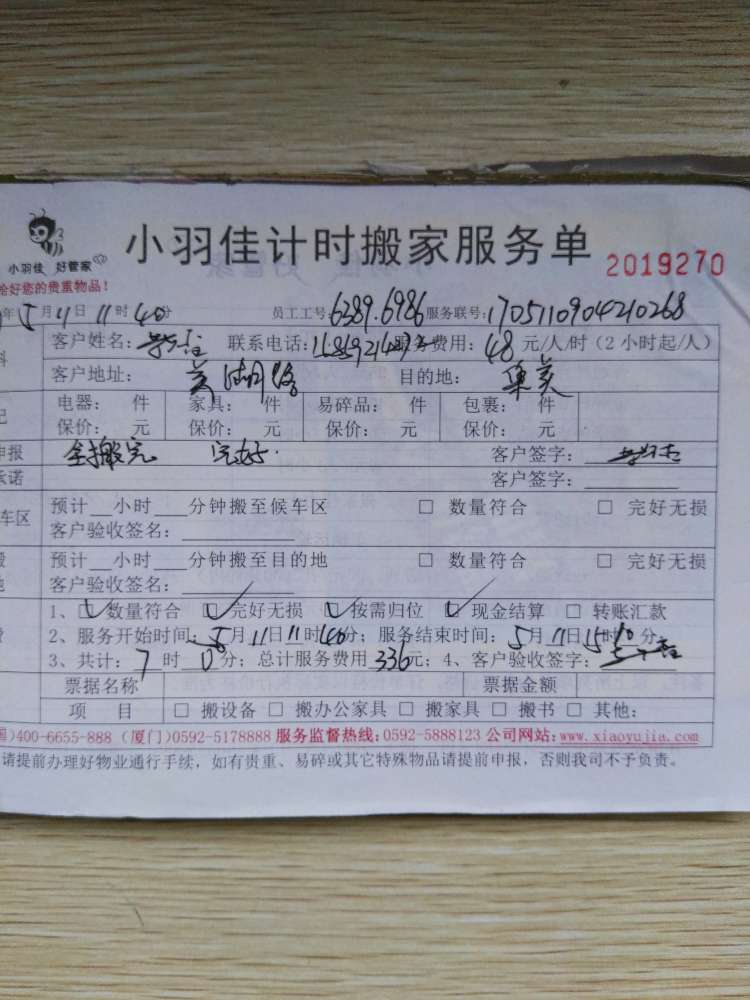 小羽佳 好管家
小羽佳计时搬家服务单 2019270
给好您的贵重物品!
年5月11日11时40分 员工工号:6389.6986 服务联号:1705110904210268
客户姓名: 联系电话: 服务费用:48元/人/时(2小时起/人)
客户地址: 湖路 目的地:集美
电器: 件 家具: 件 易碎品: 件 包裹: 件
保价: 元 保价: 元 保价: 元 保价: 元
申报 全搬完 完好. 客户签字:
承诺 客户签字:
车区 预计__小时___分钟搬至候车区 □ 数量符合 □ 完好无损
客户验收签名:
预计__小时___分钟搬至目的地 □ 数量符合 □ 完好无损
客户验收签名:
1、☑数量符合 ☑完好无损 ☑按需归位 ☑现金结算 □ 转账汇款
2、服务开始时间:5月11日11时40分; 服务结束时间:5月11日15时10分
3、共计:7时0分; 总计服务费用336元; 4、客户验收签字:
票据名称 票据金额
项 目 □ 搬设备 □ 搬办公家具 □ 搬家具 □ 搬书 □ 其他:
国)400-6655-888 (厦门)0592-5178888 服务监督热线:0592-5888123 公司网站:www.xiaoyujia.com
请提前办理好物业通行手续, 如有贵重、易碎或其它特殊物品请提前申报, 否则我司不予负责。